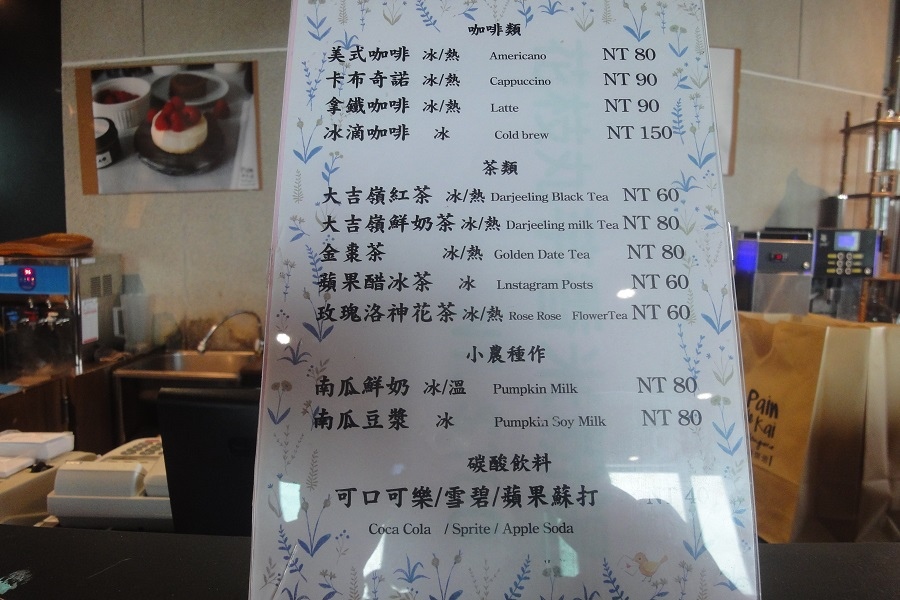 咖啡類
美式咖啡 冰/熱 Americano NT 80
卡布奇諾 冰/熱 Cappuccino NT 90
拿鐵咖啡 冰/熱 Latte NT 90
冰滴咖啡 冰 Cold brew NT 150
茶類
大吉嶺紅茶 冰/熱 Darjeeling Black Tea NT 60
大吉嶺鮮奶茶 冰/熱 Darjeeling milk Tea NT 80
金棗茶 冰/熱 Golden Date Tea NT 80
蘋果醋冰茶 冰 Lnstagram Posts NT 60
玫瑰洛神花茶 冰/熱 Rose Rose FlowerTea NT 60
小農種作
南瓜鮮奶 冰/溫 Pumpkin Milk NT 80
南瓜豆漿 冰 Pumpkin Soy Milk NT 80
碳酸飲料
可口可樂/雪碧/蘋果蘇打 NT 40
Coca Cola / Sprite / Apple Soda
Pain
Kai